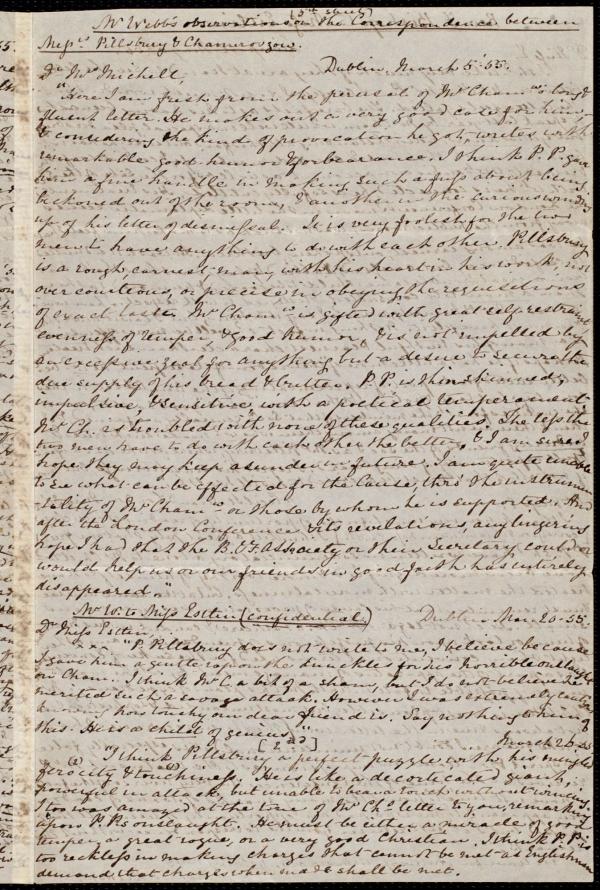 Mr Webb's observations (5th sheet) on the Correspondence between
Messrs Pillsbury & Chamerovzow.
Dr Mrs Michell, Dublin, March 5. 55.
"Here I am fresh from the perusal of Mr Cham's long &
fluent letter. He makes out a very good case for him, -
& considering the kind of provocation he got, writes with
remarkable good humor & forbearance. I think P.P. gave
him a fine handle in making such a fuss about being
beckoned out of the room, & another in the curious winding
up of his letter of dismissal. It is very foolish for the two
men to have anything to do with each other. Pillsbury
is a rough, earnest man, with his heart in his work, not
over courteous, or precise in obeying the requisitions
of exact taste. Mr Cham is gifted with great self-restraint
evenness of temper, & good humor, & is not impelled by
an excessive zeal for anything but a desire to secure the
due supply of his bread & butter. P.P. is thinskinned,
impulsive, & sensitive, with a poetical temperament
Mr Ch. is troubled with none of these qualities. The less the
two men have to do with each other the better, & I am sure I
hope they may keep asunder in future. I am quite unable
to see what can be effected for the Cause, thro' the instrumen
tality of Mr Cham or those by whom he is supported. And
after the London Conference & its revelations, any lingering
hope I had that the B. & F. Association or their Secretary could or
would help us or our friends in good faith has entirely
disappeared."
Mr W. to Miss Estlin (confidential) Dublin Mar. 20. 55.
Dr Miss Estlin,
"P. Pillsbury does not write to me, I believe because
I gave him a gentle rap on the knuckles for his horrible onslaught
on Cham. I think Mr C. a bit of a sham, but I do not believe he
merited such a savage attack. However I was extremely cautious
knowing how touchy our dear friend is. Say nothing to him of
this. He is a child of genius."
[2nd] March 26. 55
"I think Pillsbury a perfect puzzle with his mingled
ferocity & touchiness. He is like a decorticated giant,
powerful in attack, but unable to bear a touch without wincing.
I too was amazed at the tone of Mr Ch's letter to you, remarking
upon P.P.'s onslaught. He must be either a miracle of good
temper, a great rogue, or a very good Christian. I think P.P. is
too reckless in making charges that cannot be met as Englishmen
demand that charges when made shall be met.